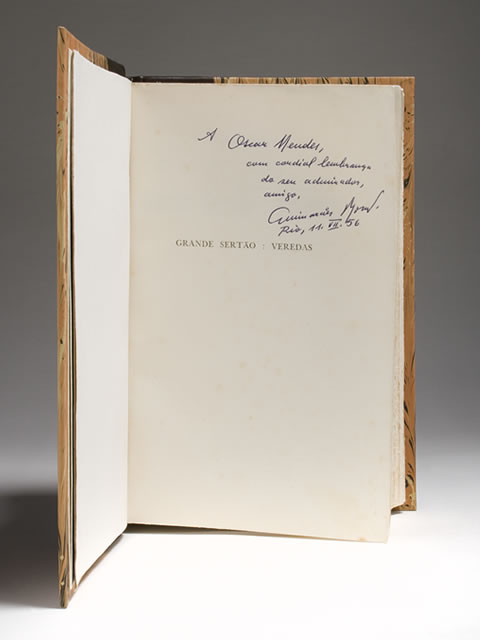 A Oscar Mendes,
com cordial lembrança
do seu admirador,
amigo,
Guimarães Rosa.
Rio, 11. VII. 56
GRANDE SERTÃO : VEREDAS